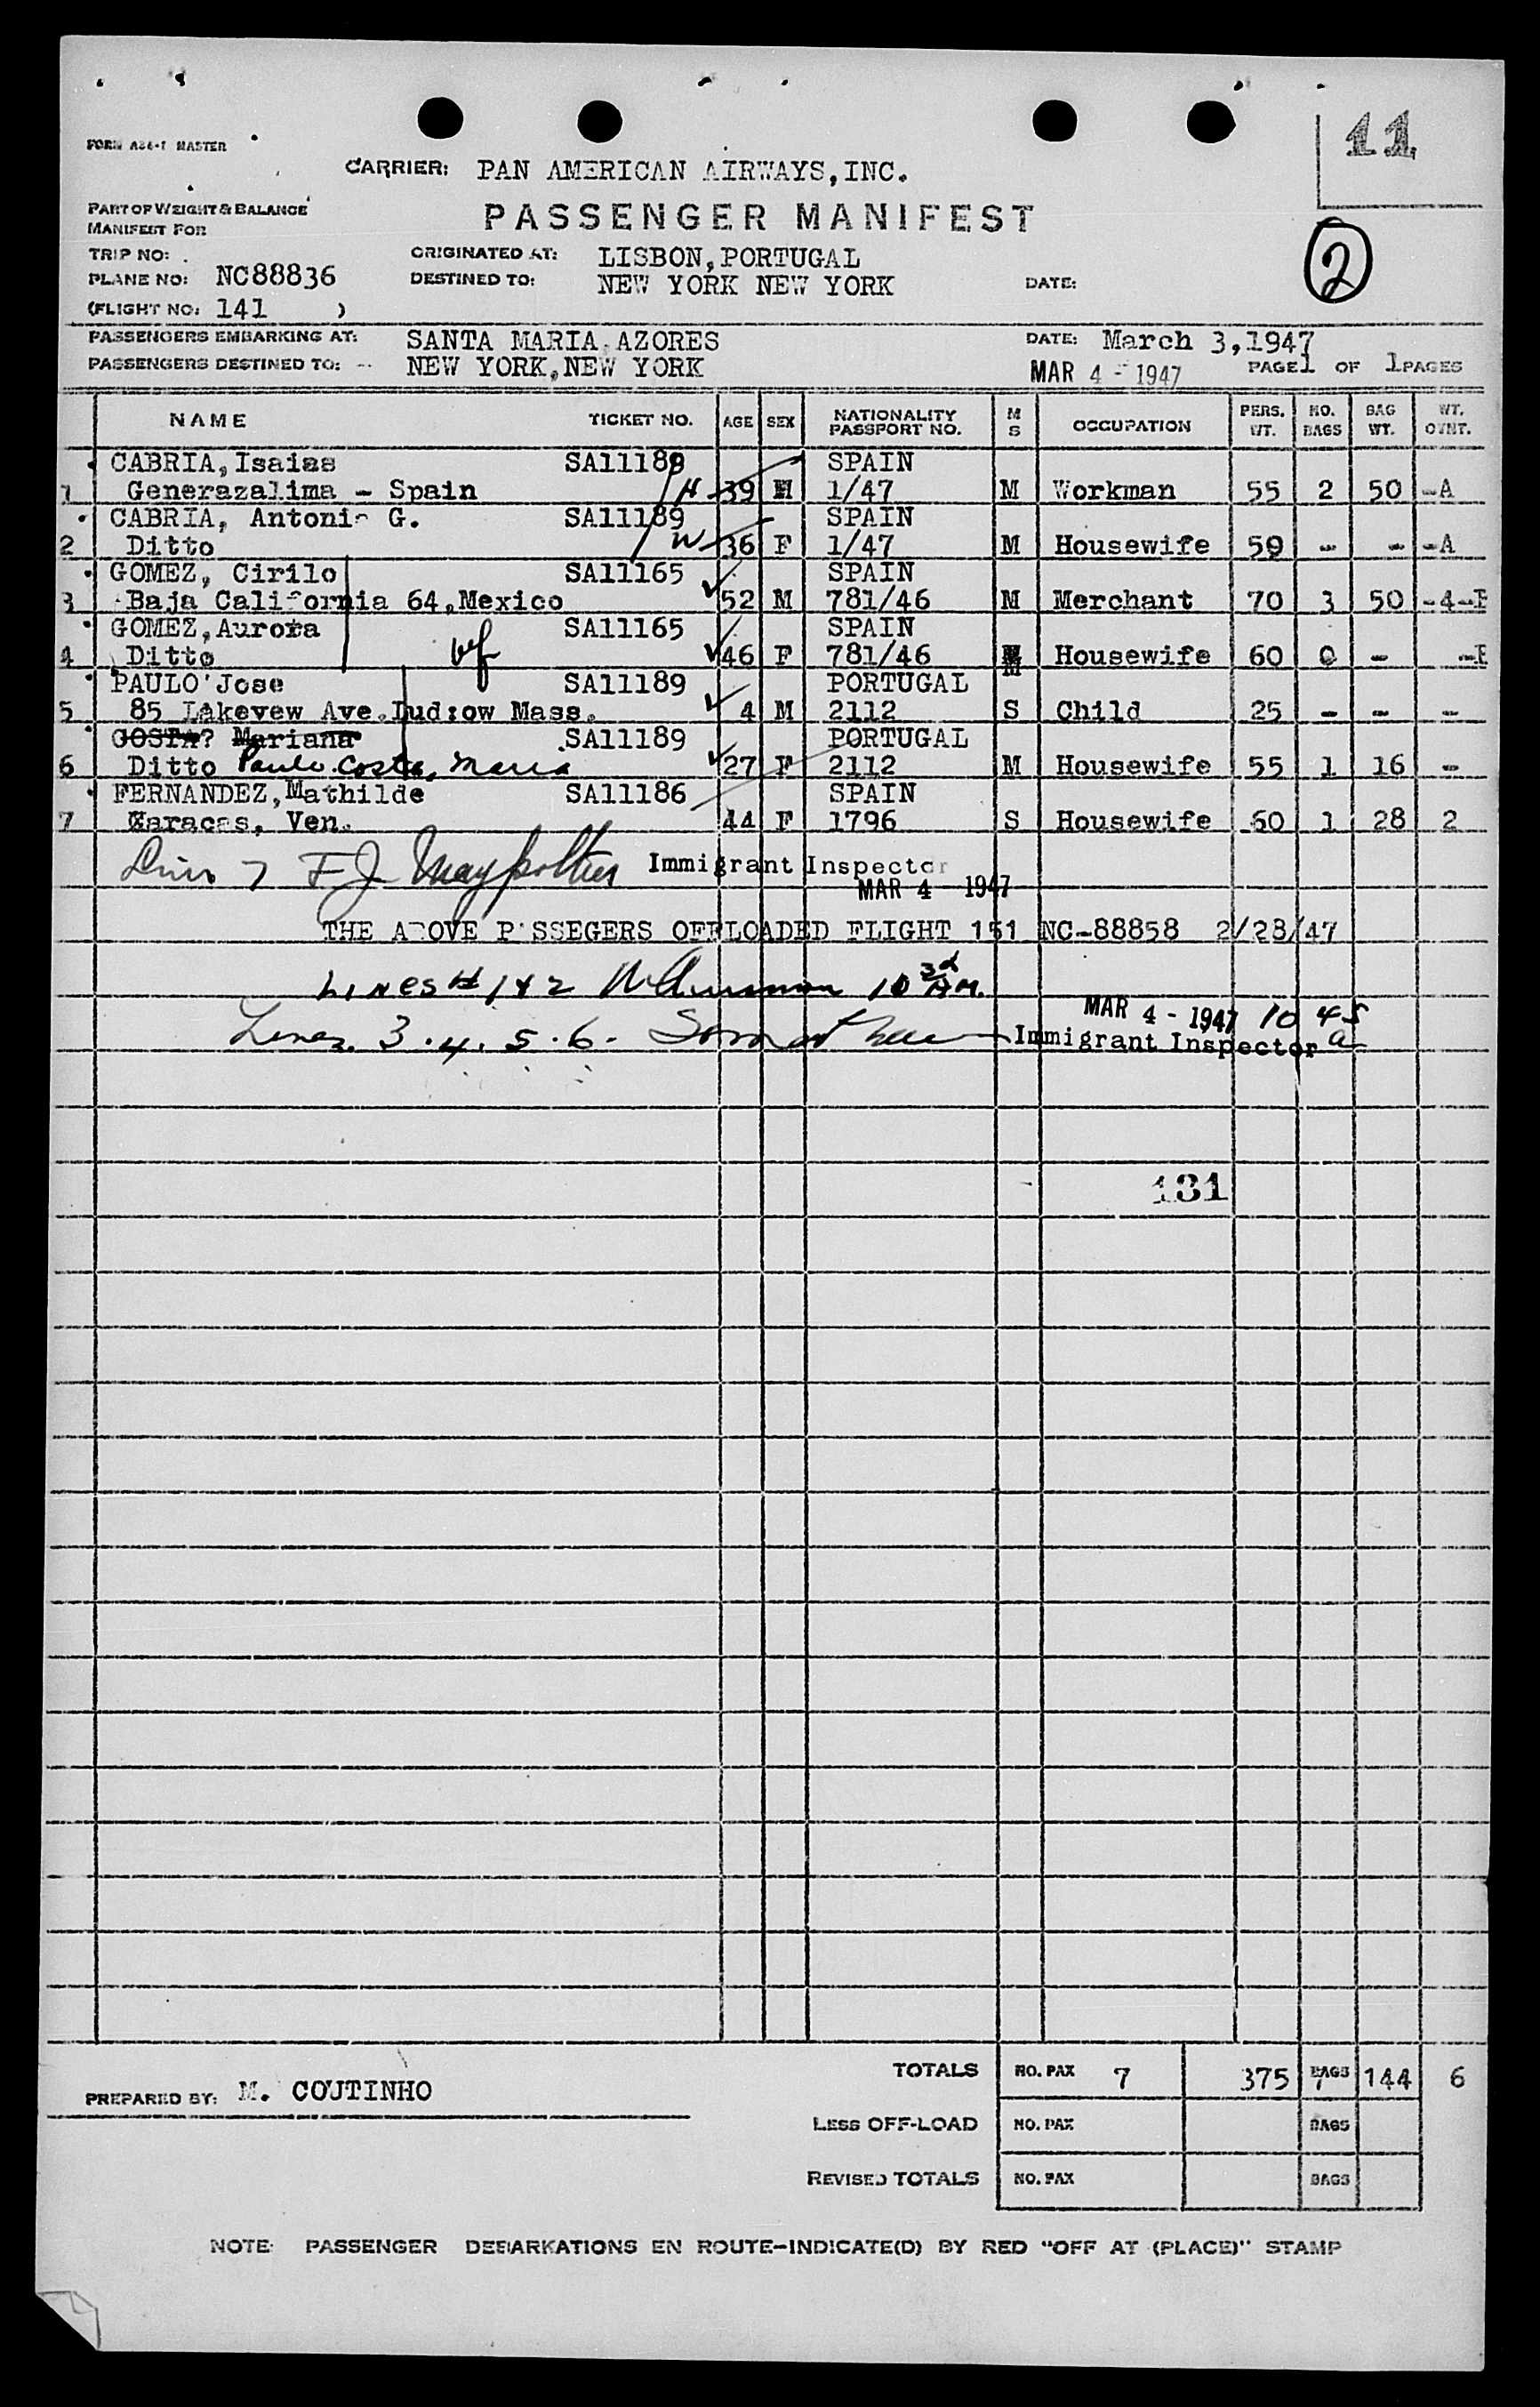 11
FORM A84-1 MASTER
CARRIER: PAN AMERICAN AIRWAYS,INC.
PART OF WEIGHT & BALANCE
MANIFEST FOR
PASSENGER MANIFEST
2
TRIP NO:
ORIGINATED AT: LISBON,PORTUGAL
PLANE NO: NC88836
DESTINED TO: NEW YORK NEW YORK
DATE:
(FLIGHT NO: 141 )
PASSENGERS EMBARKING AT: SANTA MARIA AZORES
DATE: March 3,1947
PASSENGERS DESTINED TO: NEW YORK,NEW YORK
MAR 4 - 1947 PAGE 1 OF 1 PAGES
NAME TICKET NO. AGE SEX NATIONALITY PASSPORT NO. M S OCCUPATION PERS. WT. NO. BAGS BAG WT. WT. OVNT.
CABRIA,Isaias SA11189 SPAIN
1 Generazalima - Spain H 39 M 1/47 M Workman 55 2 50 -A
CABRIA, Antonia G. SA11189 SPAIN
2 Ditto W 36 F 1/47 M Housewife 59 - - -A
GOMEZ, Cirilo SA11165 SPAIN
3 Baja California 64,Mexico 52 M 781/46 M Merchant 70 3 50 -4-
GOMEZ,Aurora SA11165 SPAIN
4 Ditto 46 F 781/46 M Housewife 60 0 - -
PAULO'Jose SA11189 PORTUGAL
5 85 Lakevew Ave.Ludlow Mass. 4 M 2112 S Child 25 - - -
COSTA? Mariana SA11189 PORTUGAL
6 Ditto Paulo Costa, Maria 27 F 2112 M Housewife 55 1 16 -
FERNANDEZ,Mathilde SA11186 SPAIN
7 Caracas, Ven. 44 F 1796 S Housewife 60 1 28 2
7 F J Immigrant Inspector
MAR 4 1947
THE ABOVE PASSEGERS OFFLOADED FLIGHT 151 NC-88858 2/28/47
LINES # 1 & 2 10 30 AM.
MAR 4 - 1947 10 45
Lines 3.4.5.6. Immigrant Inspector a
131
TOTALS NO. PAX 7 375 BAGS 7 144 6
PREPARED BY: M. COUTINHO
LESS OFF-LOAD NO. PAX BAGS
REVISED TOTALS NO. PAX BAGS
NOTE: PASSENGER DEBARKATIONS EN ROUTE-INDICATE(D) BY RED "OFF AT (PLACE)" STAMP